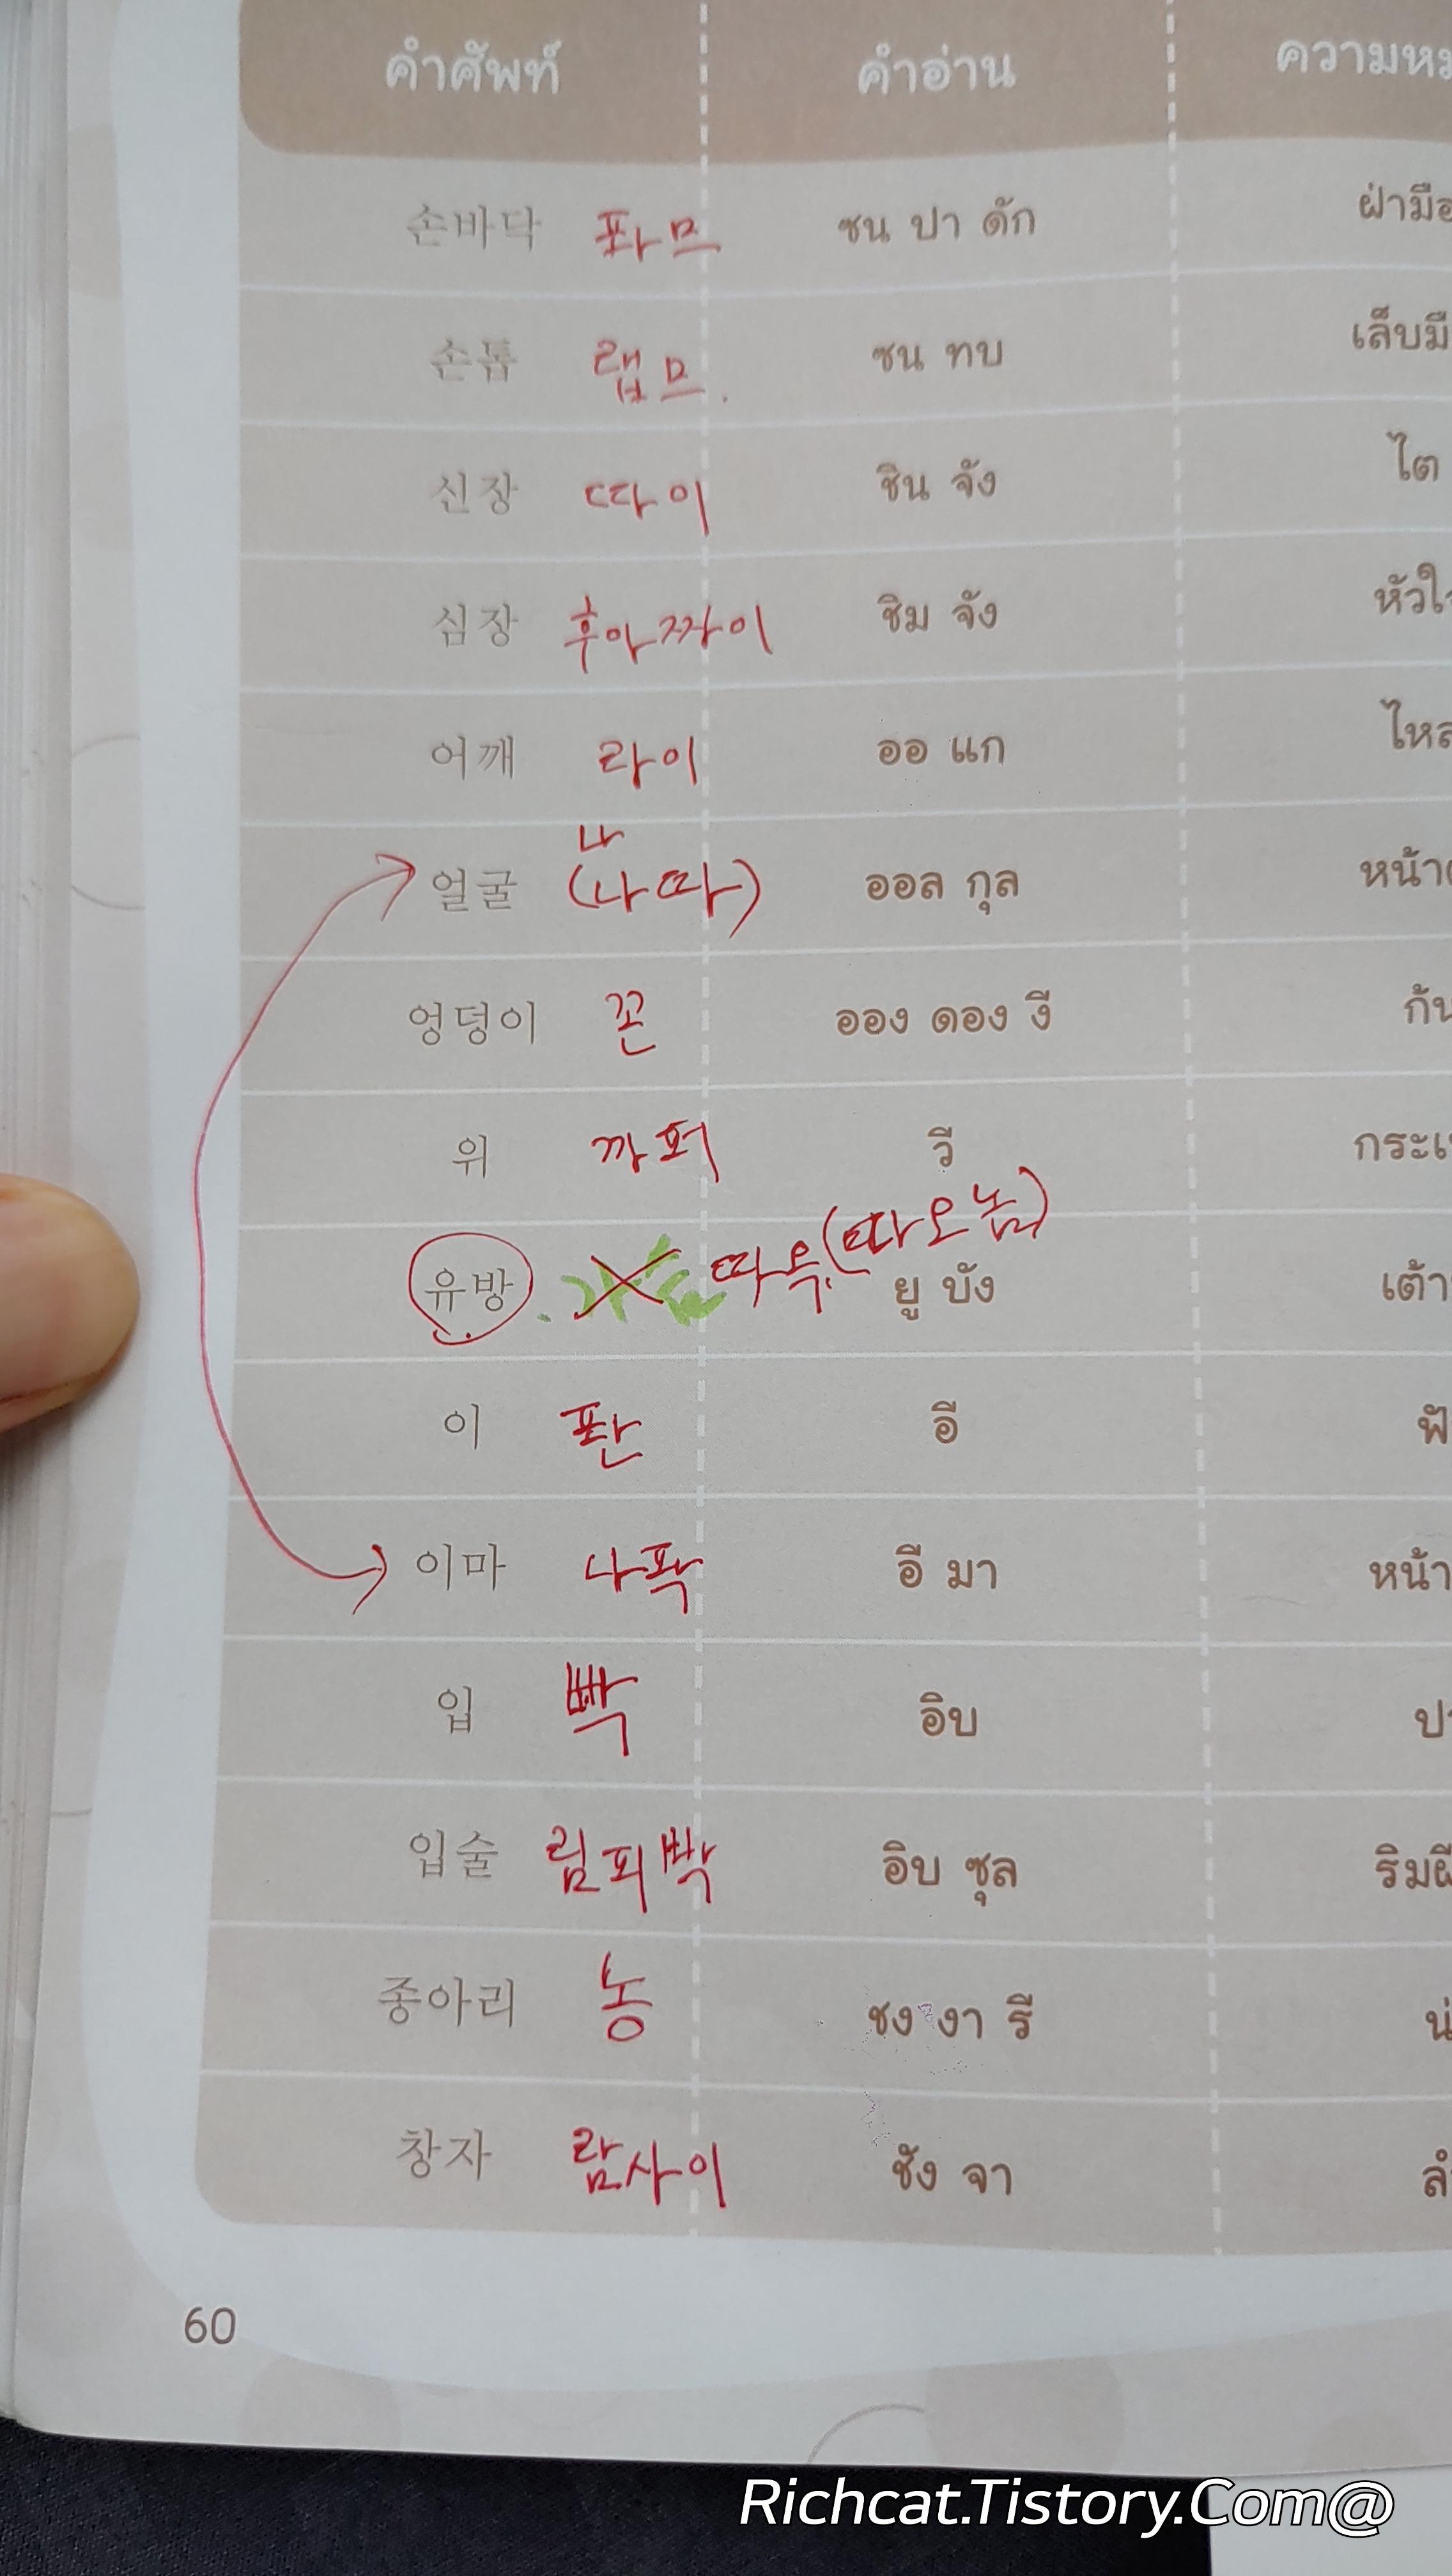 คำศัพท์ คำอ่าน
손바닥 퐈므 ซน บา ดัก ฝ่ามือ
손톱 랩므 ซน ทบ
신장 따이 ชิน จัง ไต
심장 후아짜이 ชิม จัง
어깨 라이 ออ แก
나
얼굴 (나따) ออล กุล หน้า
엉덩이 꼰 ออง ดอง งี
위 까퍼 วี
(따오놈)
유방 따우 ยู บัง
이 퐌 อี
이마 나퐉 อี มา หน้า
입 빡 อิบ
입술 림피빡 อิบ ซุล
종아리 농 ชง งา รี
창자 람사이 ชัง จา
60
Richcat.Tistory.Com@